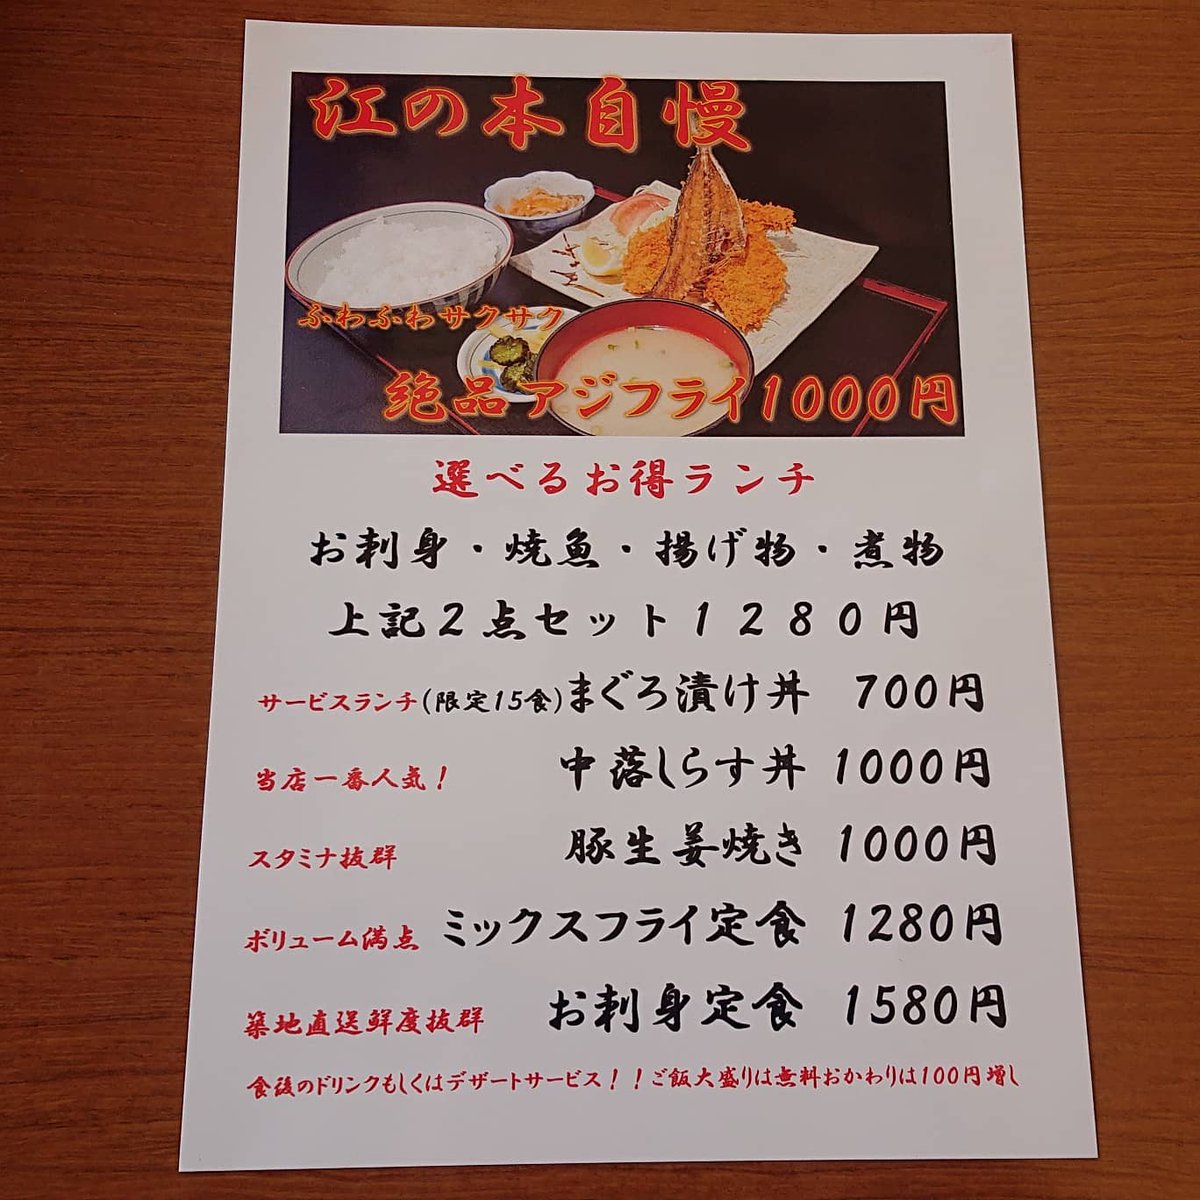 江の本自慢
ふわふわサクサク
絶品アジフライ1000円
選べるお得ランチ
お刺身・焼魚・揚げ物・煮物
上記2点セット1280円
サービスランチ(限定15食)まぐろ漬け丼 700円
当店一番人気! 中落しらす丼 1000円
スタミナ抜群 豚生姜焼き 1000円
ボリューム満点 ミックスフライ定食 1280円
築地直送鮮度抜群 お刺身定食 1580円
食後のドリンクもしくはデザートサービス!!ご飯大盛りは無料おかわりは100円増し